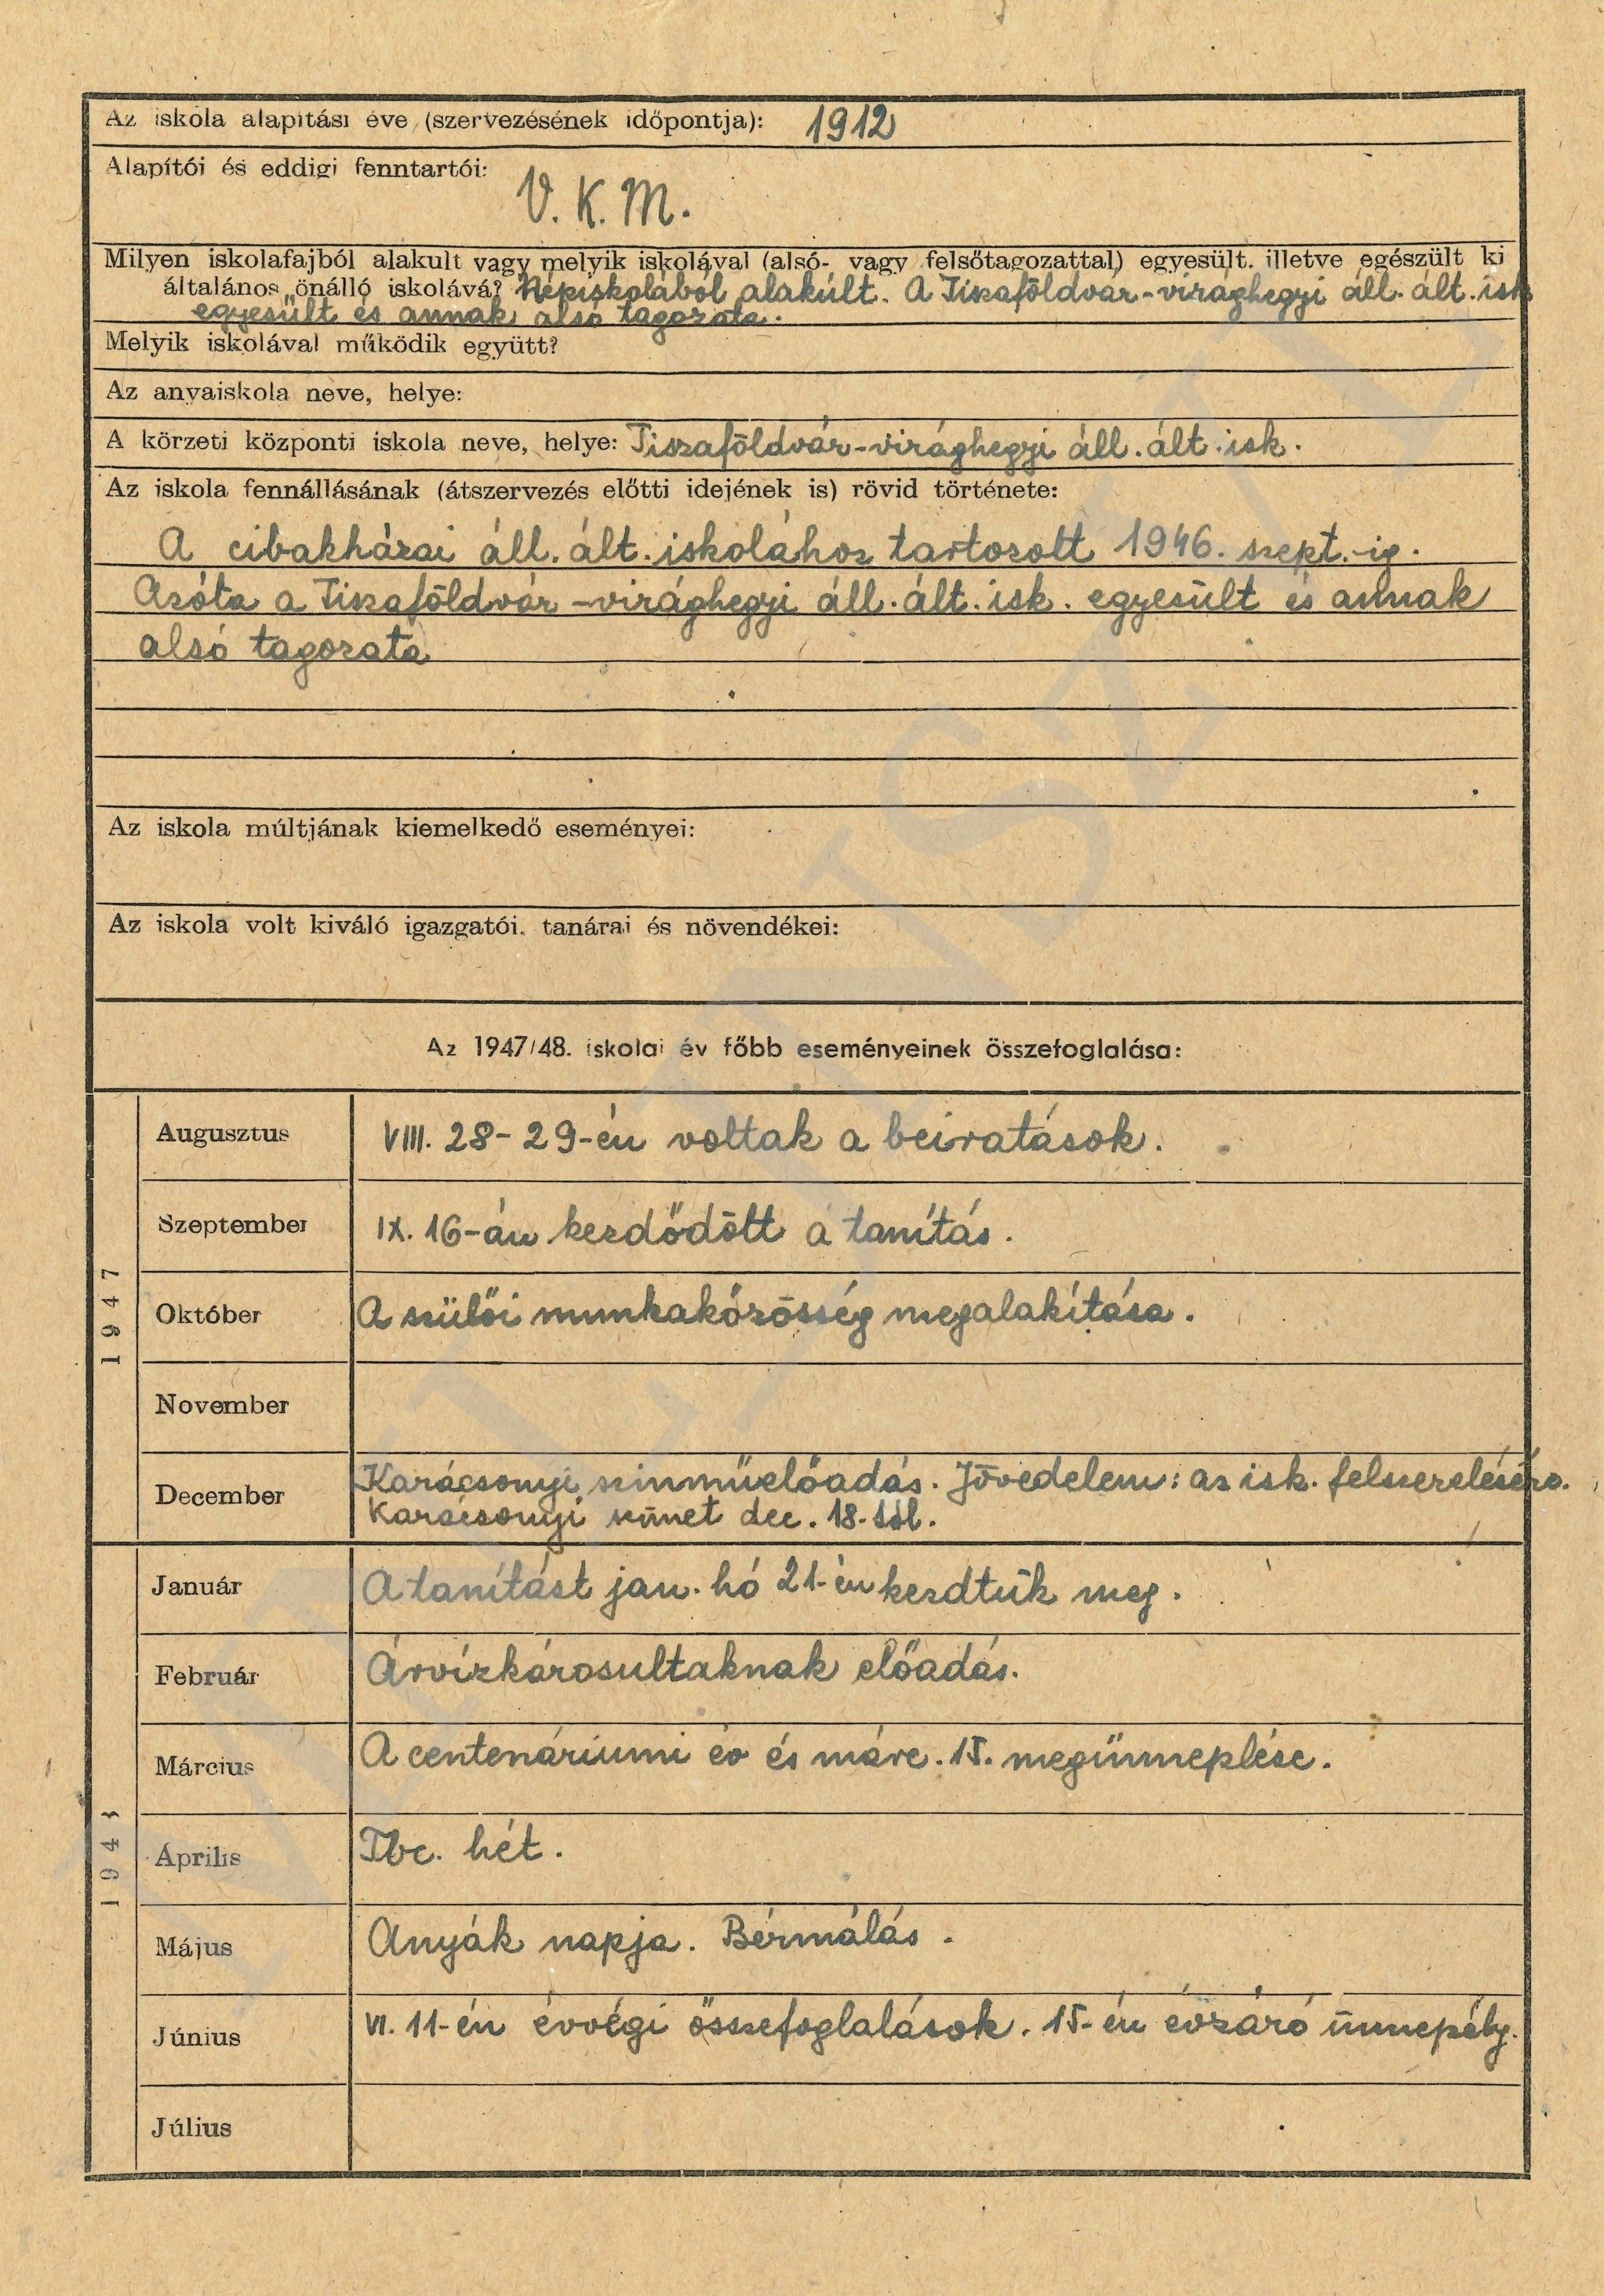 Az iskola alapítási éve (szervezésének időpontja): 1912
Alapítói és eddigi fenntartói:
V. K. M.
Milyen iskolafajból alakult vagy melyik iskolával (alsó- vagy felsőtagozattal) egyesült. illetve egészült ki
általános önálló iskolává? Népiskolából alakúlt. A Tiszaföldvár-virághegyi áll. ált. isk
egyesült és annak alsó tagozata.
Melyik iskolával működik együtt?
Az anyaiskola neve, helye:
A körzeti központi iskola neve, helye: Tiszaföldvár-virághegyi áll. ált. isk.
Az iskola fennállásának (átszervezés előtti idejének is) rövid története:
A cibakházai áll. ált. iskolához tartozott 1946. szept.-ig.
Azóta a Tiszaföldvár-virághegyi áll. ált. isk. egyesült és annak
alsó tagozata
Az iskola múltjának kiemelkedő eseményei:
Az iskola volt kiváló igazgatói. tanárai és növendékei:
Az 1947/48. iskolai év főbb eseményeinek összefoglalása:
1947
Augusztus VIII. 28-29-én voltak a beiratások.
Szeptember IX. 16-án kezdődött a tanítás.
Október A szülői munkaközösség megalakítása.
November
December Karácsonyi szinműelőadás. Jövedelem: az isk. felszerelésére.
Karácsonyi szünet dec. 18-tól.
1948
Január A tanítást jan. hó 21-én kezdtük meg.
Február Árvízkárosultaknak előadás.
Március A centenáriumi év és márc. 15. megünneplése.
Április Tbc. hét.
Május Anyák napja. Bérmálás.
Június VI. 11-én évvégi összefoglalások. 15-én évzáró ünnepély.
Július